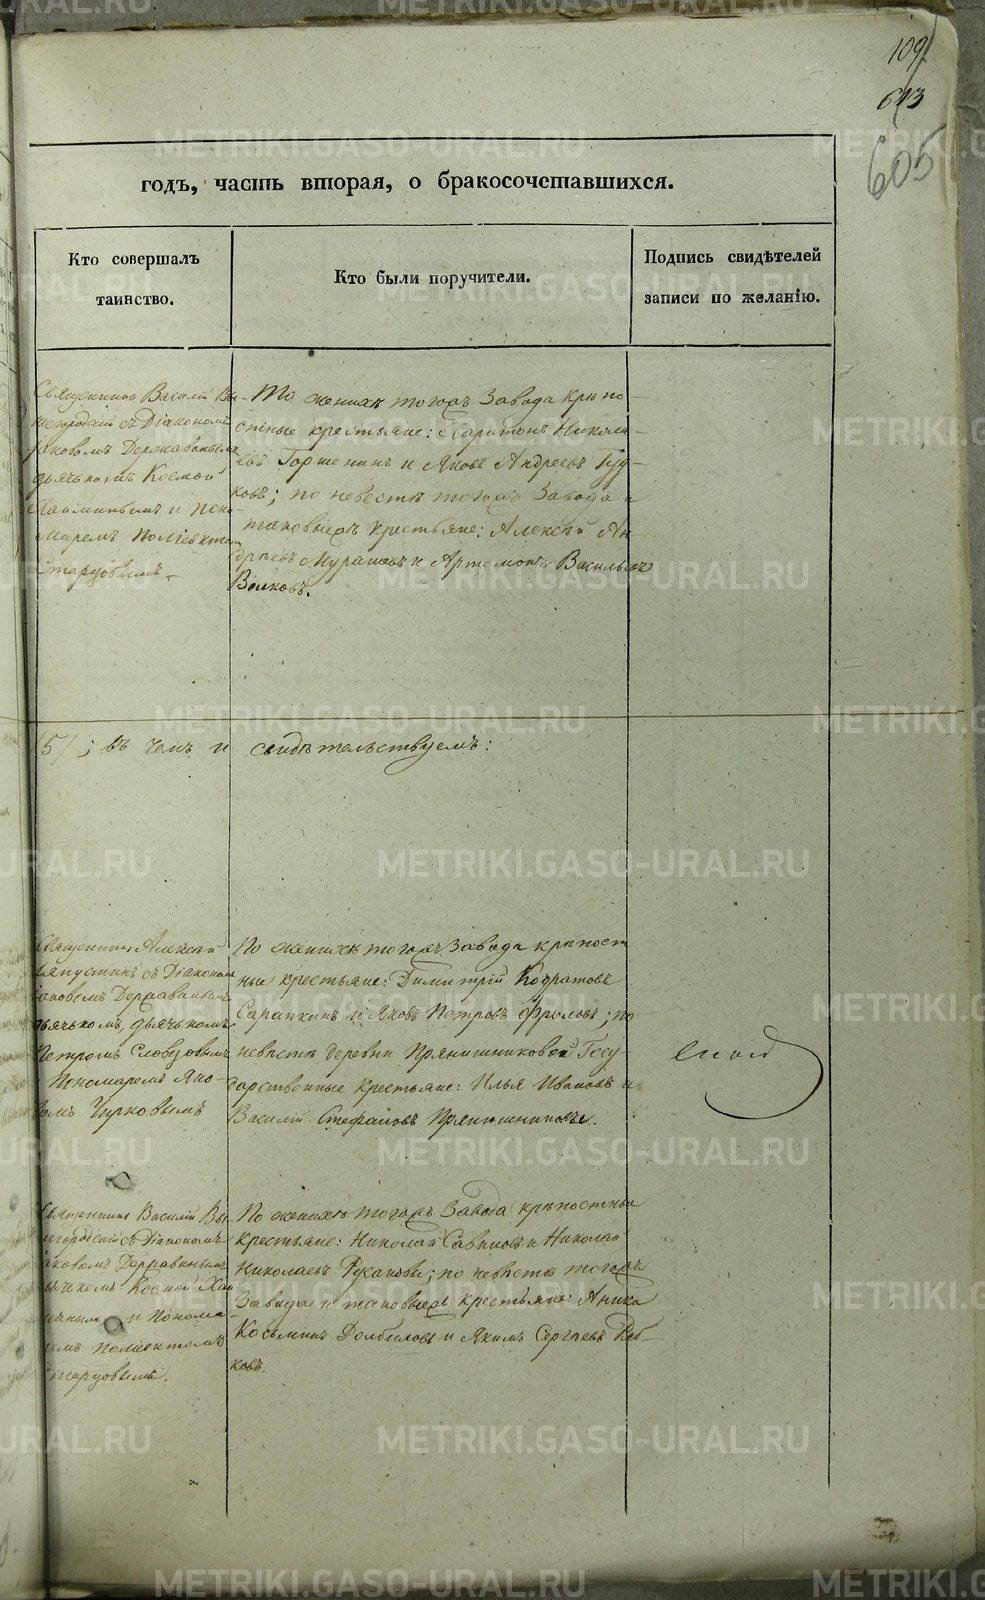 109
643
605
годъ, часть вторая, о бракосочетавшихся.
Кто совершалъ
таинство.
Кто были поручители.
Подпись свидѣтелей
записи по желанію.
Священникъ Василій Вы-
шегородскій съ Діакономъ
Іаковомъ Державинымъ
дьячькомъ Космой
и Поно-
маремъ Поліевктомъ
Старцовымъ
По женихѣ тогожъ Завода крѣпо-
стные крестьяне: Харитонъ Никола-
евъ Горшенинъ и Яковъ Андреевъ Гуд-
ковъ; по невестѣ тогожъ Завода и
таковыежъ крестьяне: Алексѣй Ан-
дреевъ и Артемонъ Васильевъ
Волковъ.
5/; въ чемъ и свидѣтельствуемъ:
Священникъ Алексѣй
Ляпустинъ съ Діакономъ
Іаковомъ Державинымъ
дьячькомъ, дьячькомъ
Петромъ Словцовымъ
Пономаремъ Яко-
вомъ Чирковымъ
По женихѣ тогожъ Завода крѣпост
ные крестьяне: Димитрій Кодратовъ
Сарапкинъ и Яковъ Петровъ Фроловъ; по
невѣстѣ деревни Прянишниковой Госу-
дарственные крестьяне: Илья Ивановъ и
Василій Стефановъ Прянишниковы.
Священникъ Василій Вы
шегородскій съ Діакономъ
Іаковомъ Державинымъ
дьячькомъ Космой
и Понома
ремъ Поліевктомъ
Старцовымъ.
По женихѣ тогожъ Завода крѣпостные
крестьяне: Николай Савиновъ и Николай
Николаевъ Русановы; по невѣстѣ тогожъ
Завода и таковыежъ крестьяне: Аника
Косьминъ Долбиловъ и Якимъ Сергѣевъ
ковъ.
METRIKI.GASO-URAL.RU